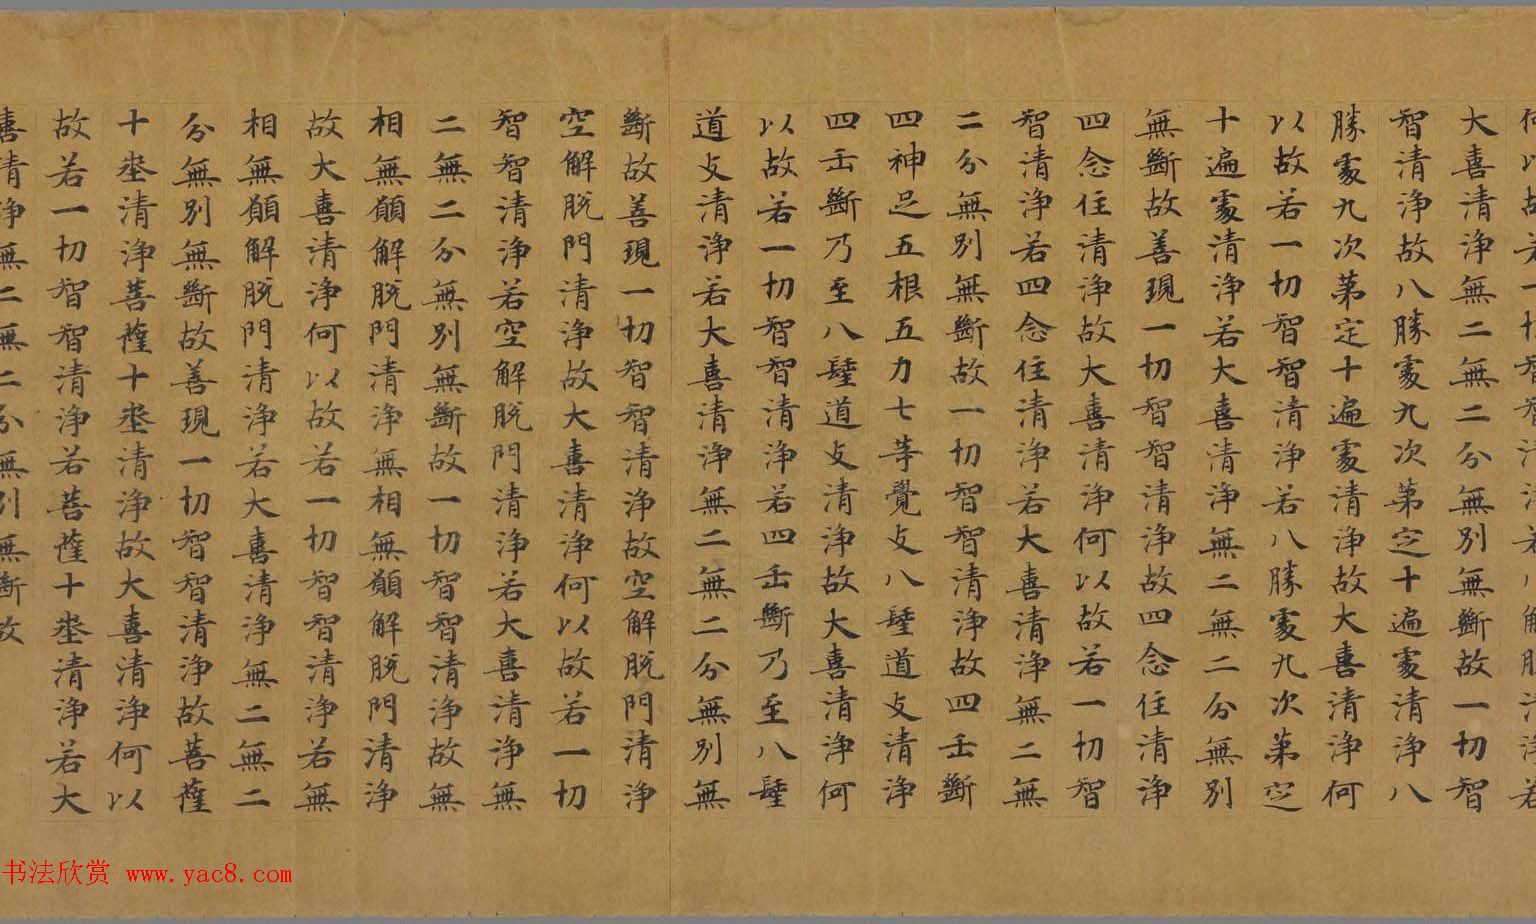 何以故若一切智智清淨若八解脫清淨若
大喜清淨無二無二分無別無斷故一切智
智清淨故八勝處九次第定十遍處清淨八
勝處九次第定十遍處清淨故大喜清淨何
以故若一切智智清淨若八勝處九次第定
十遍處清淨若大喜清淨無二無二分無別
無斷故善現一切智智清淨故四念住清淨
四念住清淨故大喜清淨何以故若一切智
智清淨若四念住清淨若大喜清淨無二無
二分無別無斷故一切智智清淨故四正斷
四神足五根五力七等覺支八聖道支清淨
四正斷乃至八聖道支清淨故大喜清淨何
以故若一切智智清淨若四正斷乃至八聖
道支清淨若大喜清淨無二無二分無別無
斷故善現一切智智清淨故空解脫門清淨
空解脫門清淨故大喜清淨何以故若一切
智智清淨若空解脫門清淨若大喜清淨無
二無二分無別無斷故一切智智清淨故無
相無願解脫門清淨無相無願解脫門清淨
故大喜清淨何以故若一切智智清淨若無
相無願解脫門清淨若大喜清淨無二無二
分無別無斷故善現一切智智清淨故菩薩
十地清淨菩薩十地清淨故大喜清淨何以
故若一切智智清淨若菩薩十地清淨若大
喜清淨無二無二分無別無斷故
书法欣赏 www.yac8.com